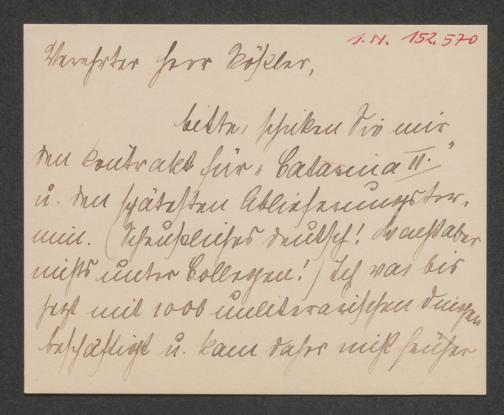 I.N. 152.570
Verehrter Herr Rößler,
bitte, schicken Sie mir
den Kontrakt für „Catarina II."
u. den spätesten Ablieferungster-
min. (Scheußliches Deutsch! macht aber
nichts unter Collegen!) Ich war bis
jetzt mit 1000 unliterarischen Dingen
beschäftigt u. kam daher nicht früher